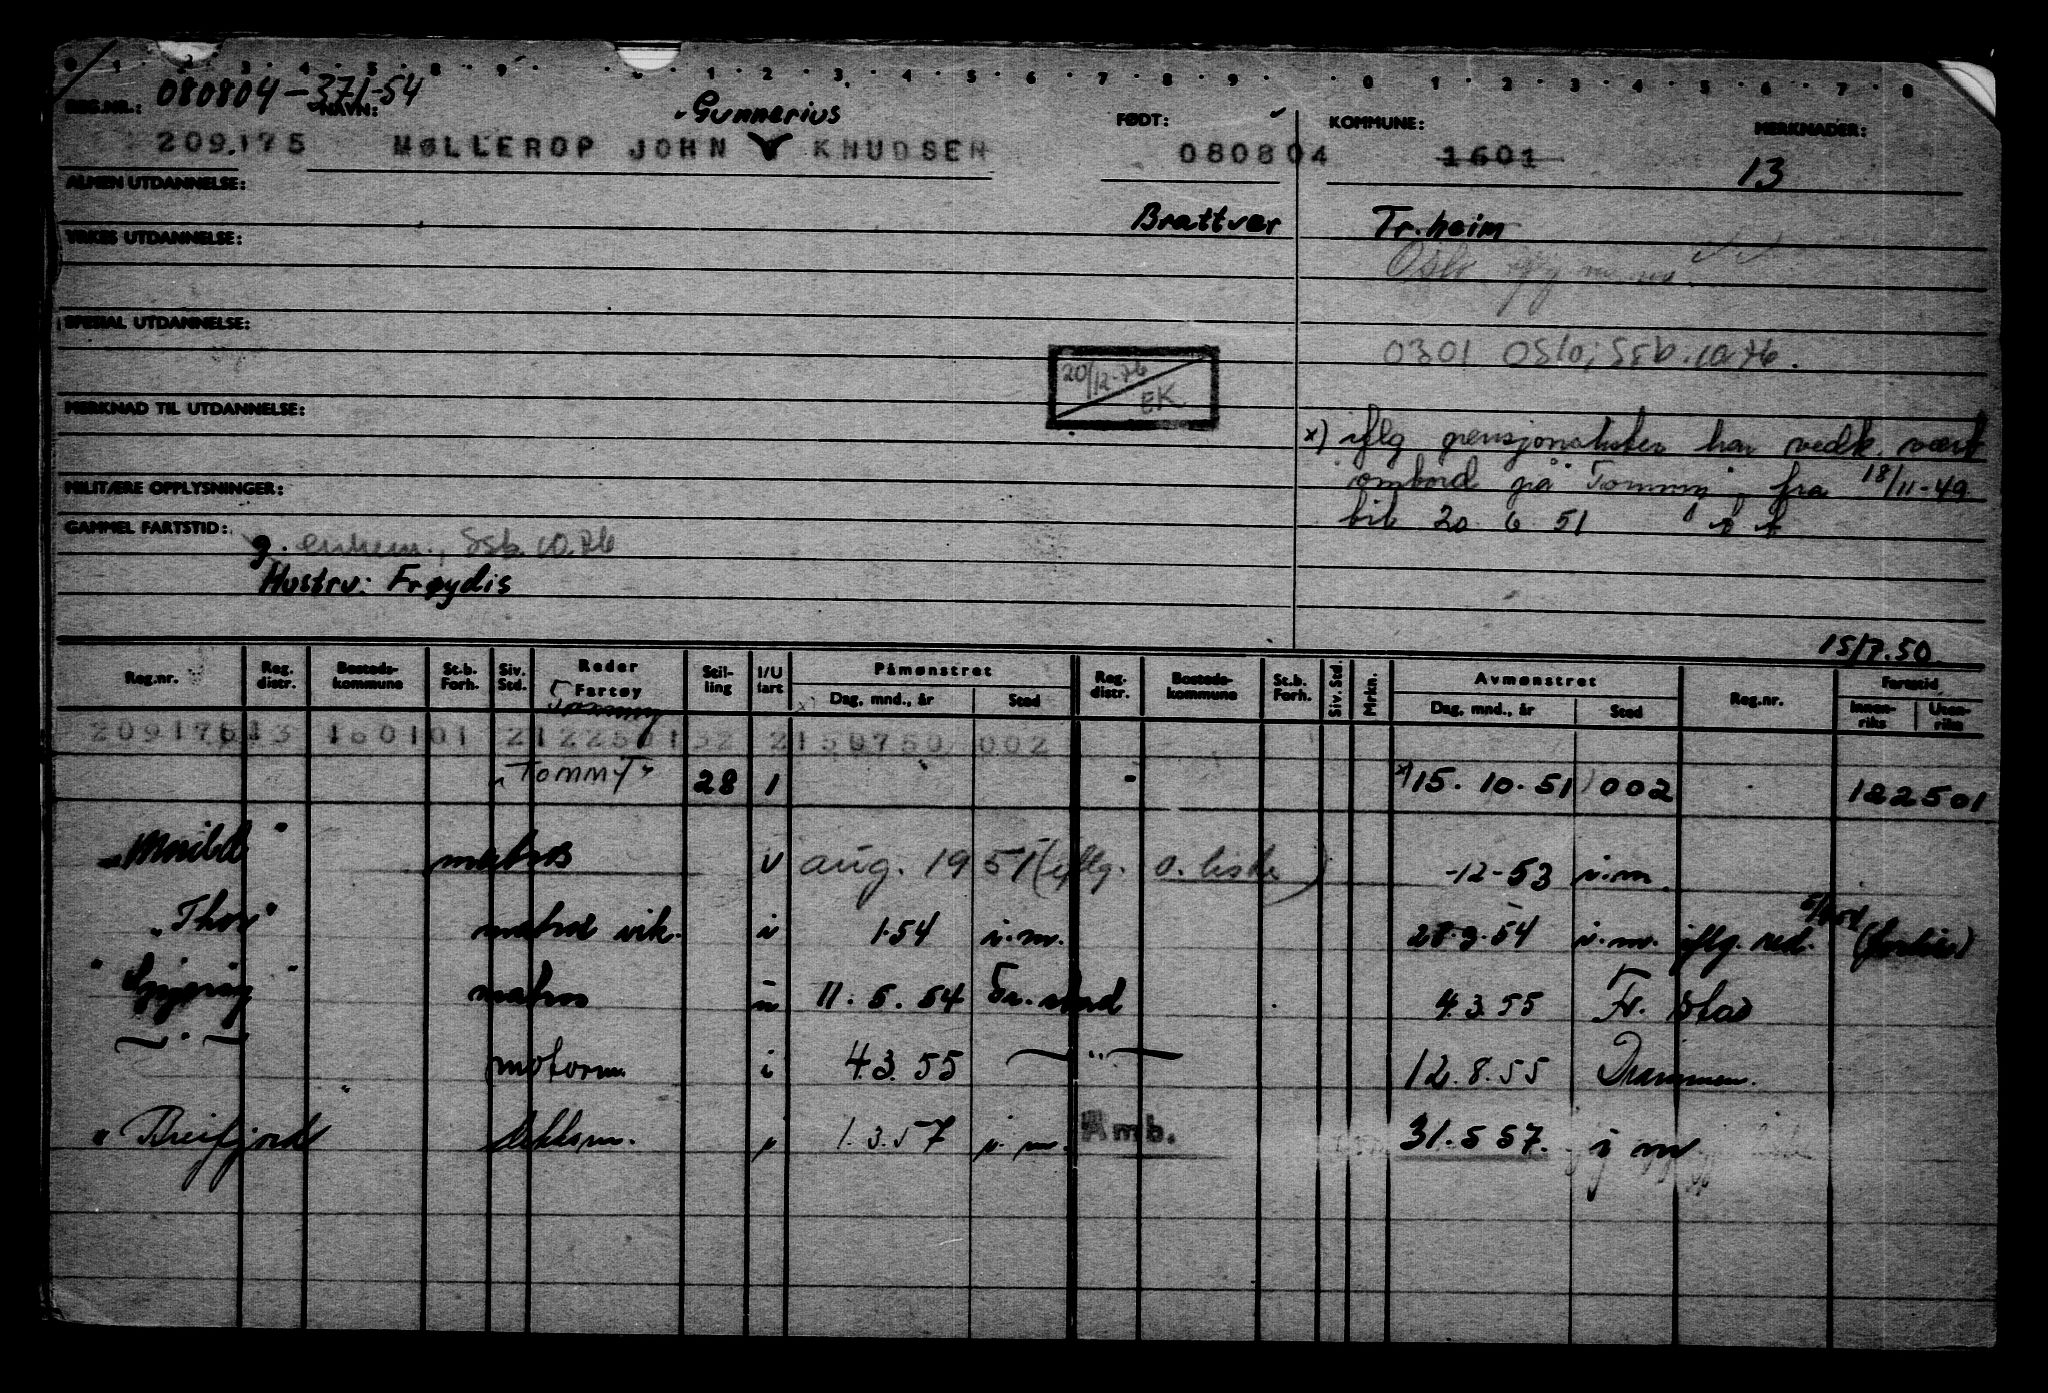 0 · 1 · 2 · 3 · 4 · 5 · 8 · 9 · · 0 · 1 · 2 · 3 · 4 · 5 · 6 · 7 · 8 · 9 · · 0 · 1 · 2 · 3 · 4 · 5 · 6 · 7 · 8
REG.NR.: 080804-371-54 NAVN: Gunnerius FØDT: KOMMUNE: MERKNADER:
209.175 MØLLEROP JOHN KNUDSEN 080804 1601 13
ALMEN UTDANNELSE:
Brattvær Tr.heim
YRKES UTDANNELSE:
Oslo
SPESIAL UTDANNELSE:
0301 Oslo; SSb. 10.76.
20/12-76 EK
MERKNAD TIL UTDANNELSE:
x) iflg pensjonslisten har vedk. vært
ombord på "Tommy" fra 18/11-49
MILITÆRE OPPLYSNINGER:
til 20 6 51
GAMMEL FARTSTID:
g. SSb. 10.76
Hustru: Frøydis
15/7.50.
Reg.nr. Reg. distr. Bosteds- kommune St.b. Forh. Siv. Std. Reder Fartøy Stil- ling I/U fart Påmønstret Dag, mnd., år Sted Reg. distr. Bosteds- kommune St.b. Forh. Siv. Std. Mrkn. Avmønstret Dag, mnd., år Sted Reg.nr. Fartstid Innen- riks Uten- riks
Tommy
209175 13 160101 2122501 32 2150750 002
"Tommy" 28 1 x) 15. 10. 51 002 122501
matros u aug. 1951 (iflg. o. liste) -12-53 u.m.
"Thor" matros vik. i 1.54 i.m. 28.3.54 i.m. iflg. red.
matros u 11. 5. 54 Fr.stad 4.3.55 Fr. stad
— " — motorm. i 4.3.55 — " — 12.8.55 Drammen.
"Breifjord" dekksm. i 1.3.57 i.m. Amb. 31.5 57. i m